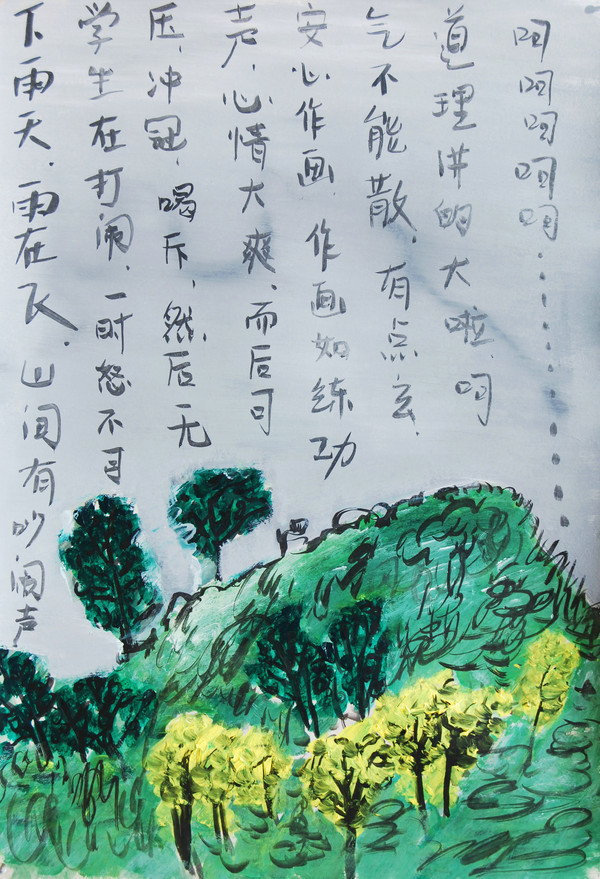 下雨天，雨在飞，山间有吵闹声
学生在打闹，一时怒不可
压，冲冠，喝斥，然后无
声，心情大爽，而后可
安心作画，作画如练功
气不能散，有点玄，
道理讲的大啦，呵
呵呵呵呵呵…………